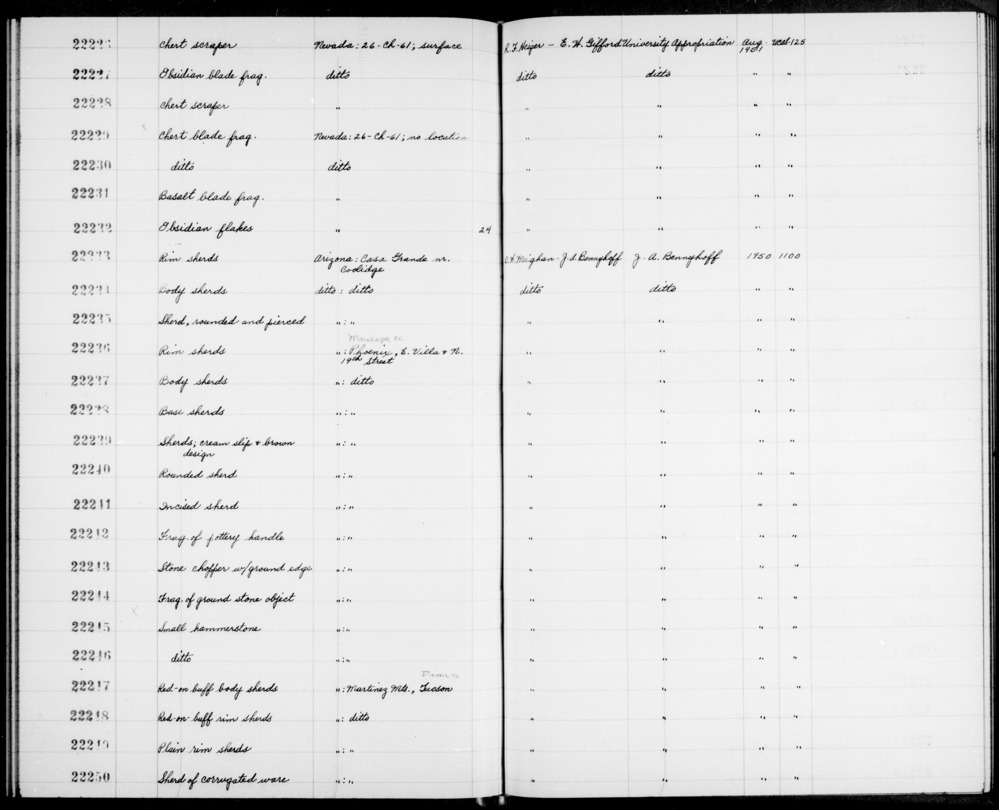 22226 Chert scraper Nevada: 26-Ch-61; surface R. F. Heizer - E. W. Gifford University Appropriation Aug. 1951 UCAS 125
22227 Obsidian blade frag. ditto ditto ditto " "
22228 Chert scraper " " " " "
22229 Chert blade frag. Nevada: 26-Ch-61; no location " " " "
22230 ditto ditto " " " "
22231 Basalt blade frag. " " " " "
22232 Obsidian flakes " 24 " " " "
22233 Rim sherds Arizona: Casa Grande nr. C. W. Meighan - J. A. Bennyhoff J. A. Bennyhoff 1950 1100
Coolidge
22234 Body sherds ditto: ditto ditto ditto " "
22235 Sherd, rounded and pierced ": " " " " "
Maricopa Co.
22236 Rim sherds ": Phoenix, E. Villa & N. " " " "
19th Street
22237 Body sherds ": ditto " " " "
22238 Base sherds ": " " " " "
22239 Sherds; cream slip & brown ": " " " " "
design
22240 Rounded sherd ": " " " " "
22241 Incised sherd ": " " " " "
22242 Frag. of pottery handle ": " " " " "
22243 Stone chopper w/ground edge ": " " " " "
22244 Frag. of ground stone object ": " " " " "
22245 Small hammerstone ": " " " " "
22246 ditto ": " " " " "
Pima Co
22247 Red-on buff body sherds ": Martinez Mts., Tucson " " " "
22248 Red-on buff rim sherds ": ditto " " " "
22249 Plain rim sherds ": " " " " "
22250 Sherd of corrugated ware ": " " " " "